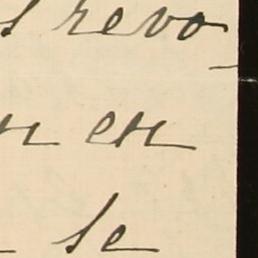 revo-
en
se